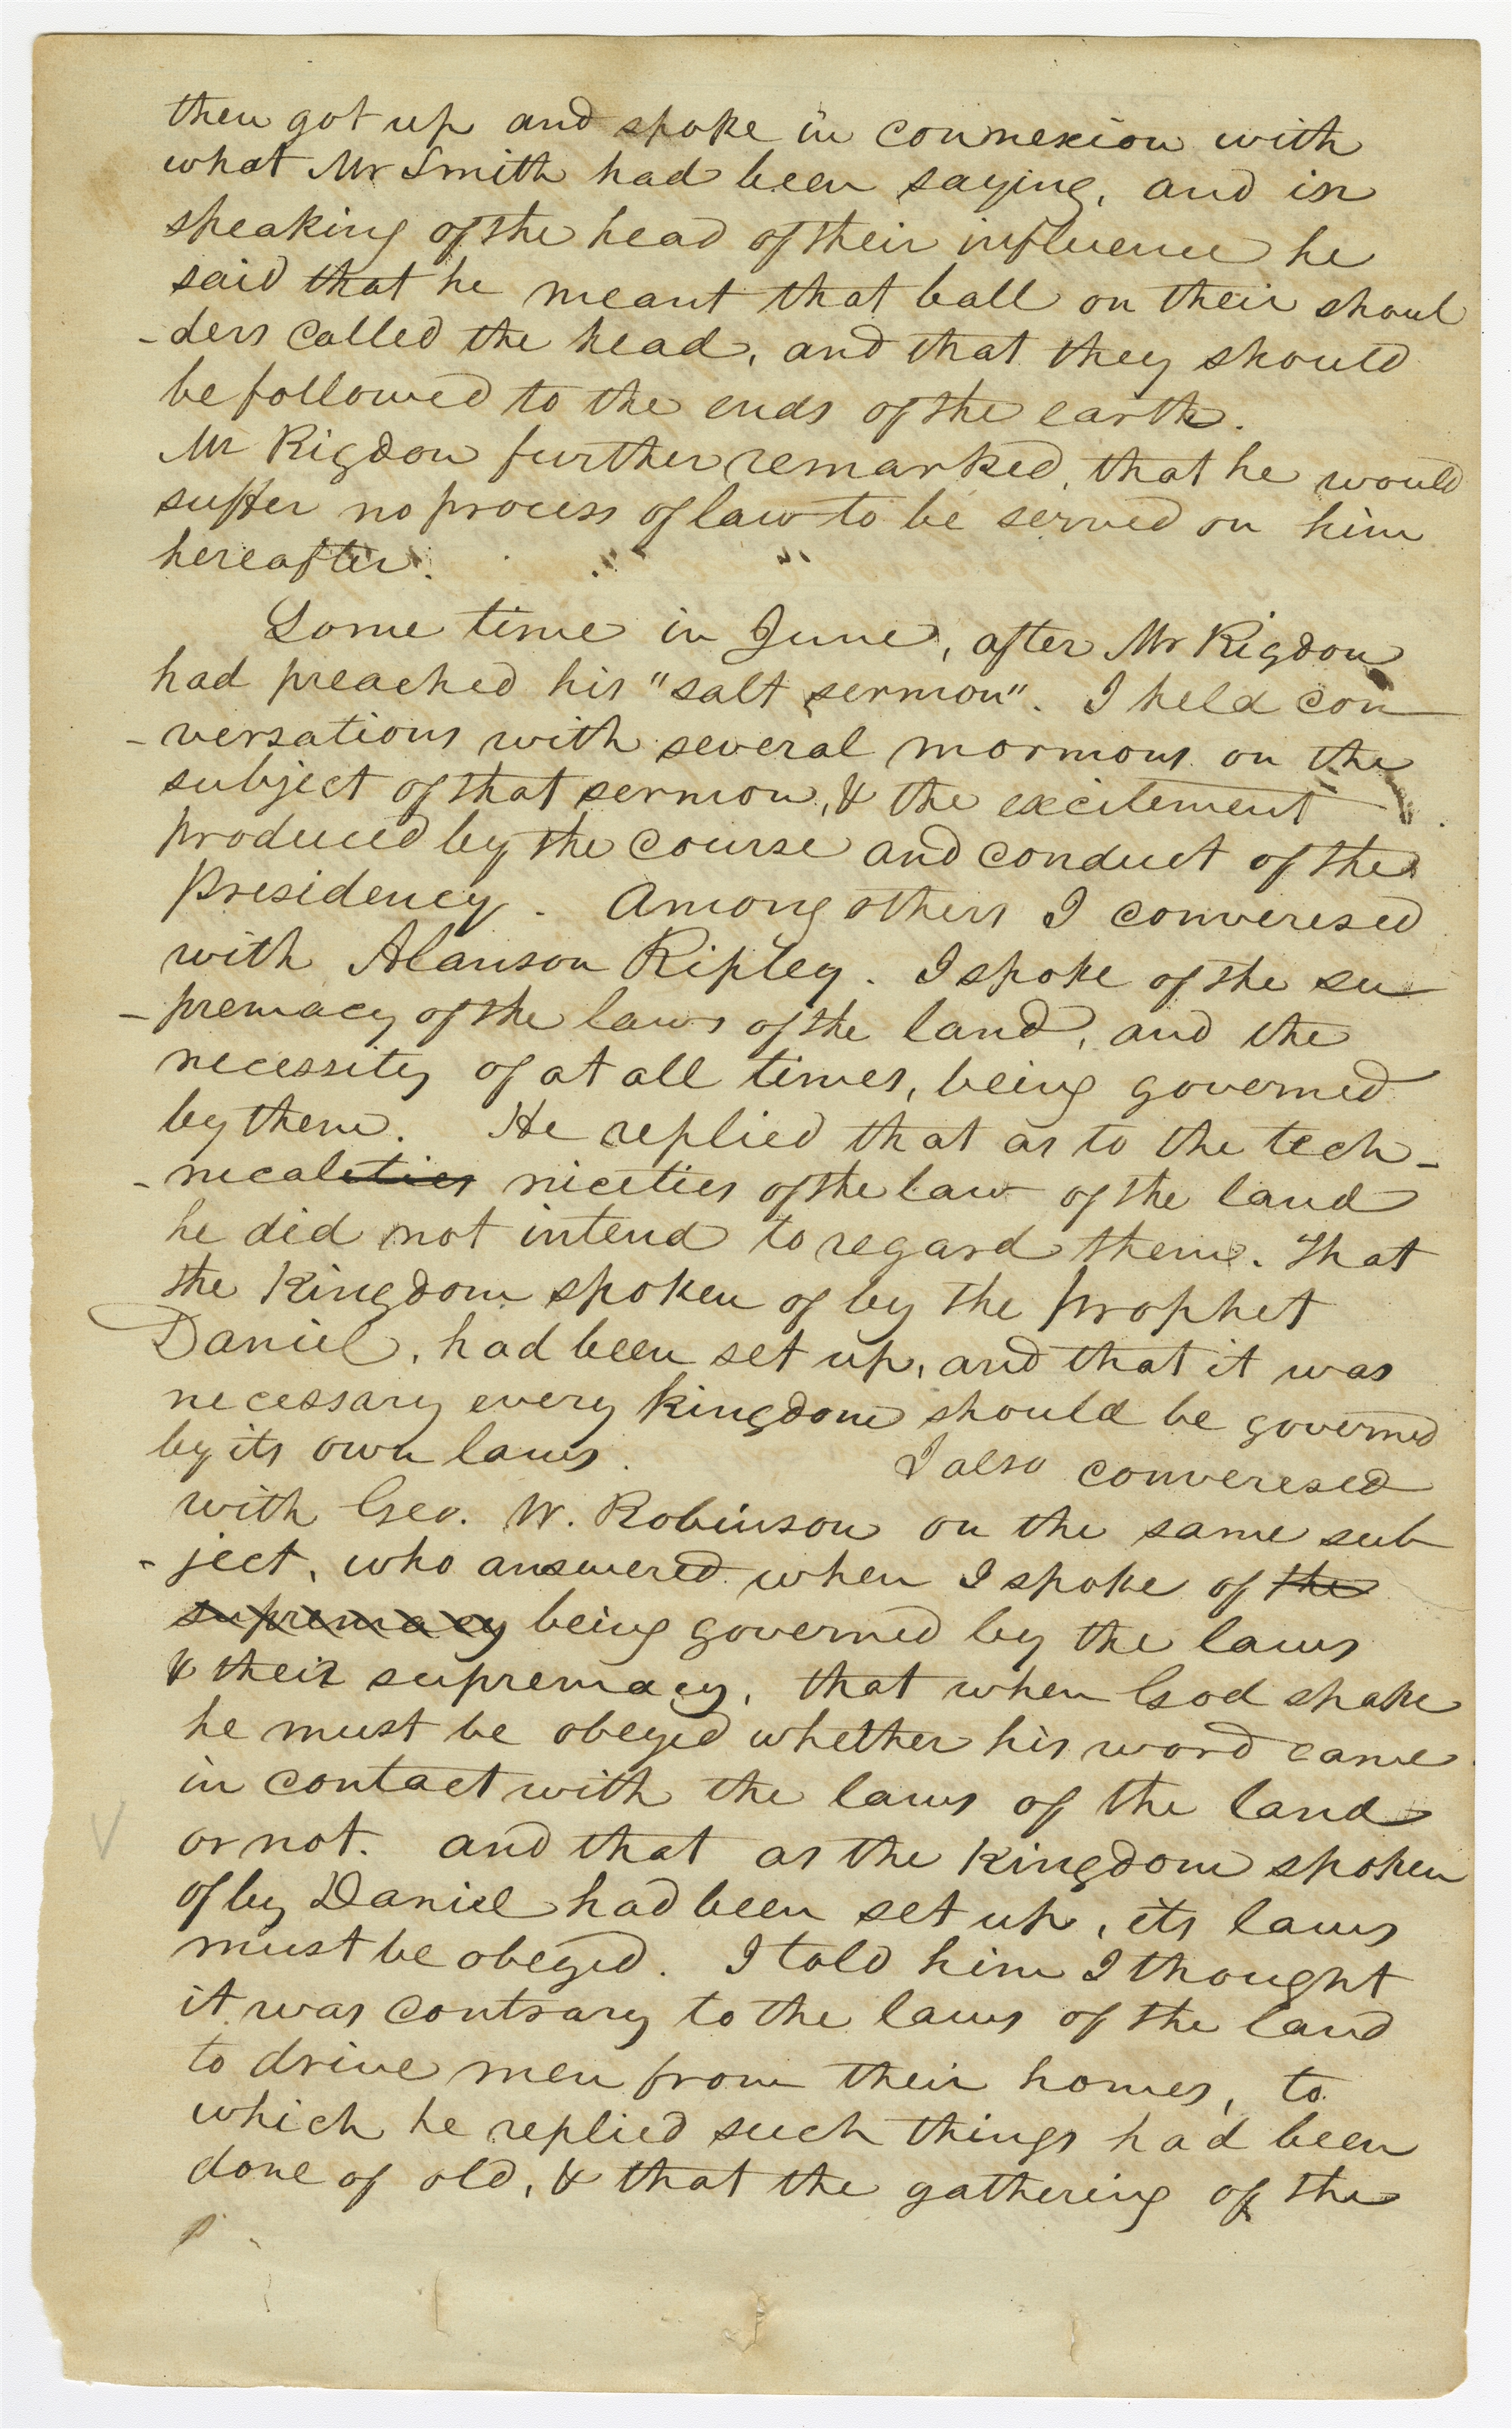 then got up and spoke in connexion with
what Mr Smith had been saying, and in
speaking of the head of their influence he
said that he meant that ball on their shoul
-ders called the head, and that they should
be followed to the ends of the earth.
Mr Rigdon further remarked, that he would
suffer no process of law to be served on him
hereafter.
Some time in June, after Mr Rigdon
had preached his "salt sermon". I held con
-versations with several mormons on the
subject of that sermon, & the excitement
produced by the course and conduct of the
presidency. Among others I converesed
with Alanson Ripley. I spoke of the su
-premacy of the laws of the land, and the
necessity of at all times, being governed
by them. He replied that as to the tech-
-nicaleties niceties of the law of the land
he did not intend to regard them. That
the Kingdom spoken of by the prophet
Daniel, had been set up, and that it was
necessary every kingdom should be governed
by its own laws. I also converesed
with Geo. W. Robinson on the same sub
-ject, who answered when I spoke of the
supremacy being governed by the laws
& their supremacy, that when God spake
he must be obeyed whether his word came
in contact with the laws of the land
or not. and that as the Kingdom spoken
of by Daniel had been set up, its laws
must be obeyed. I told him I thought
it was contrary to the laws of the land
to drive men from their homes, to
which he replied such things had been
done of old, & that the gathering of the